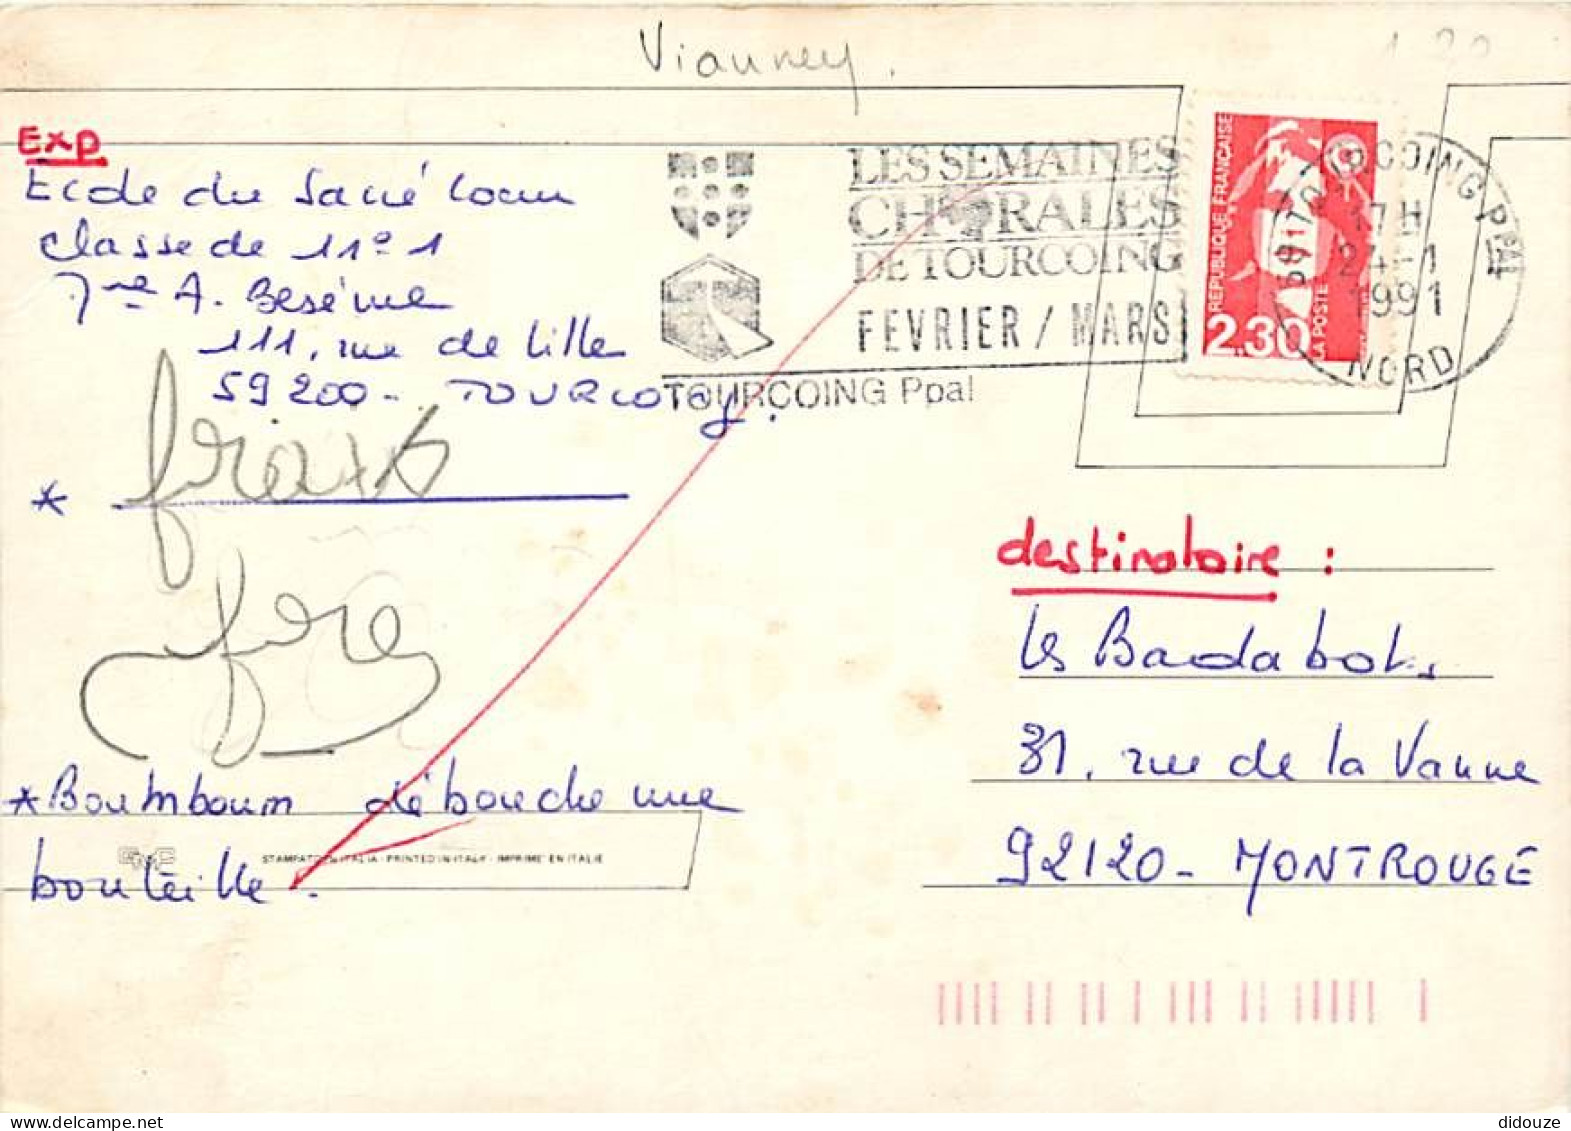 Vianney.
1 20
Exp
Ecole du Sacré Coeur
Classe de 11e 1
Mme A. Beséme
111, rue de Lille
59200 - TOURCOING.
LES SEMAINES
CHORALES
DE TOURCOING
FEVRIER / MARS
TOURCOING Ppal
REPUBLIQUE FRANÇAISE
2.30
LA POSTE
59 TOURCOING PPAL
17 H
24-1
1991
NORD
*
destinataire :
Les Badaboks
31, rue de la Vanne
92120 - MONTROUGE
* Boumboum débouche une
bouteille.
STAMPATO IN ITALIA - PRINTED IN ITALY - IMPRIME' EN ITALIE
didouze